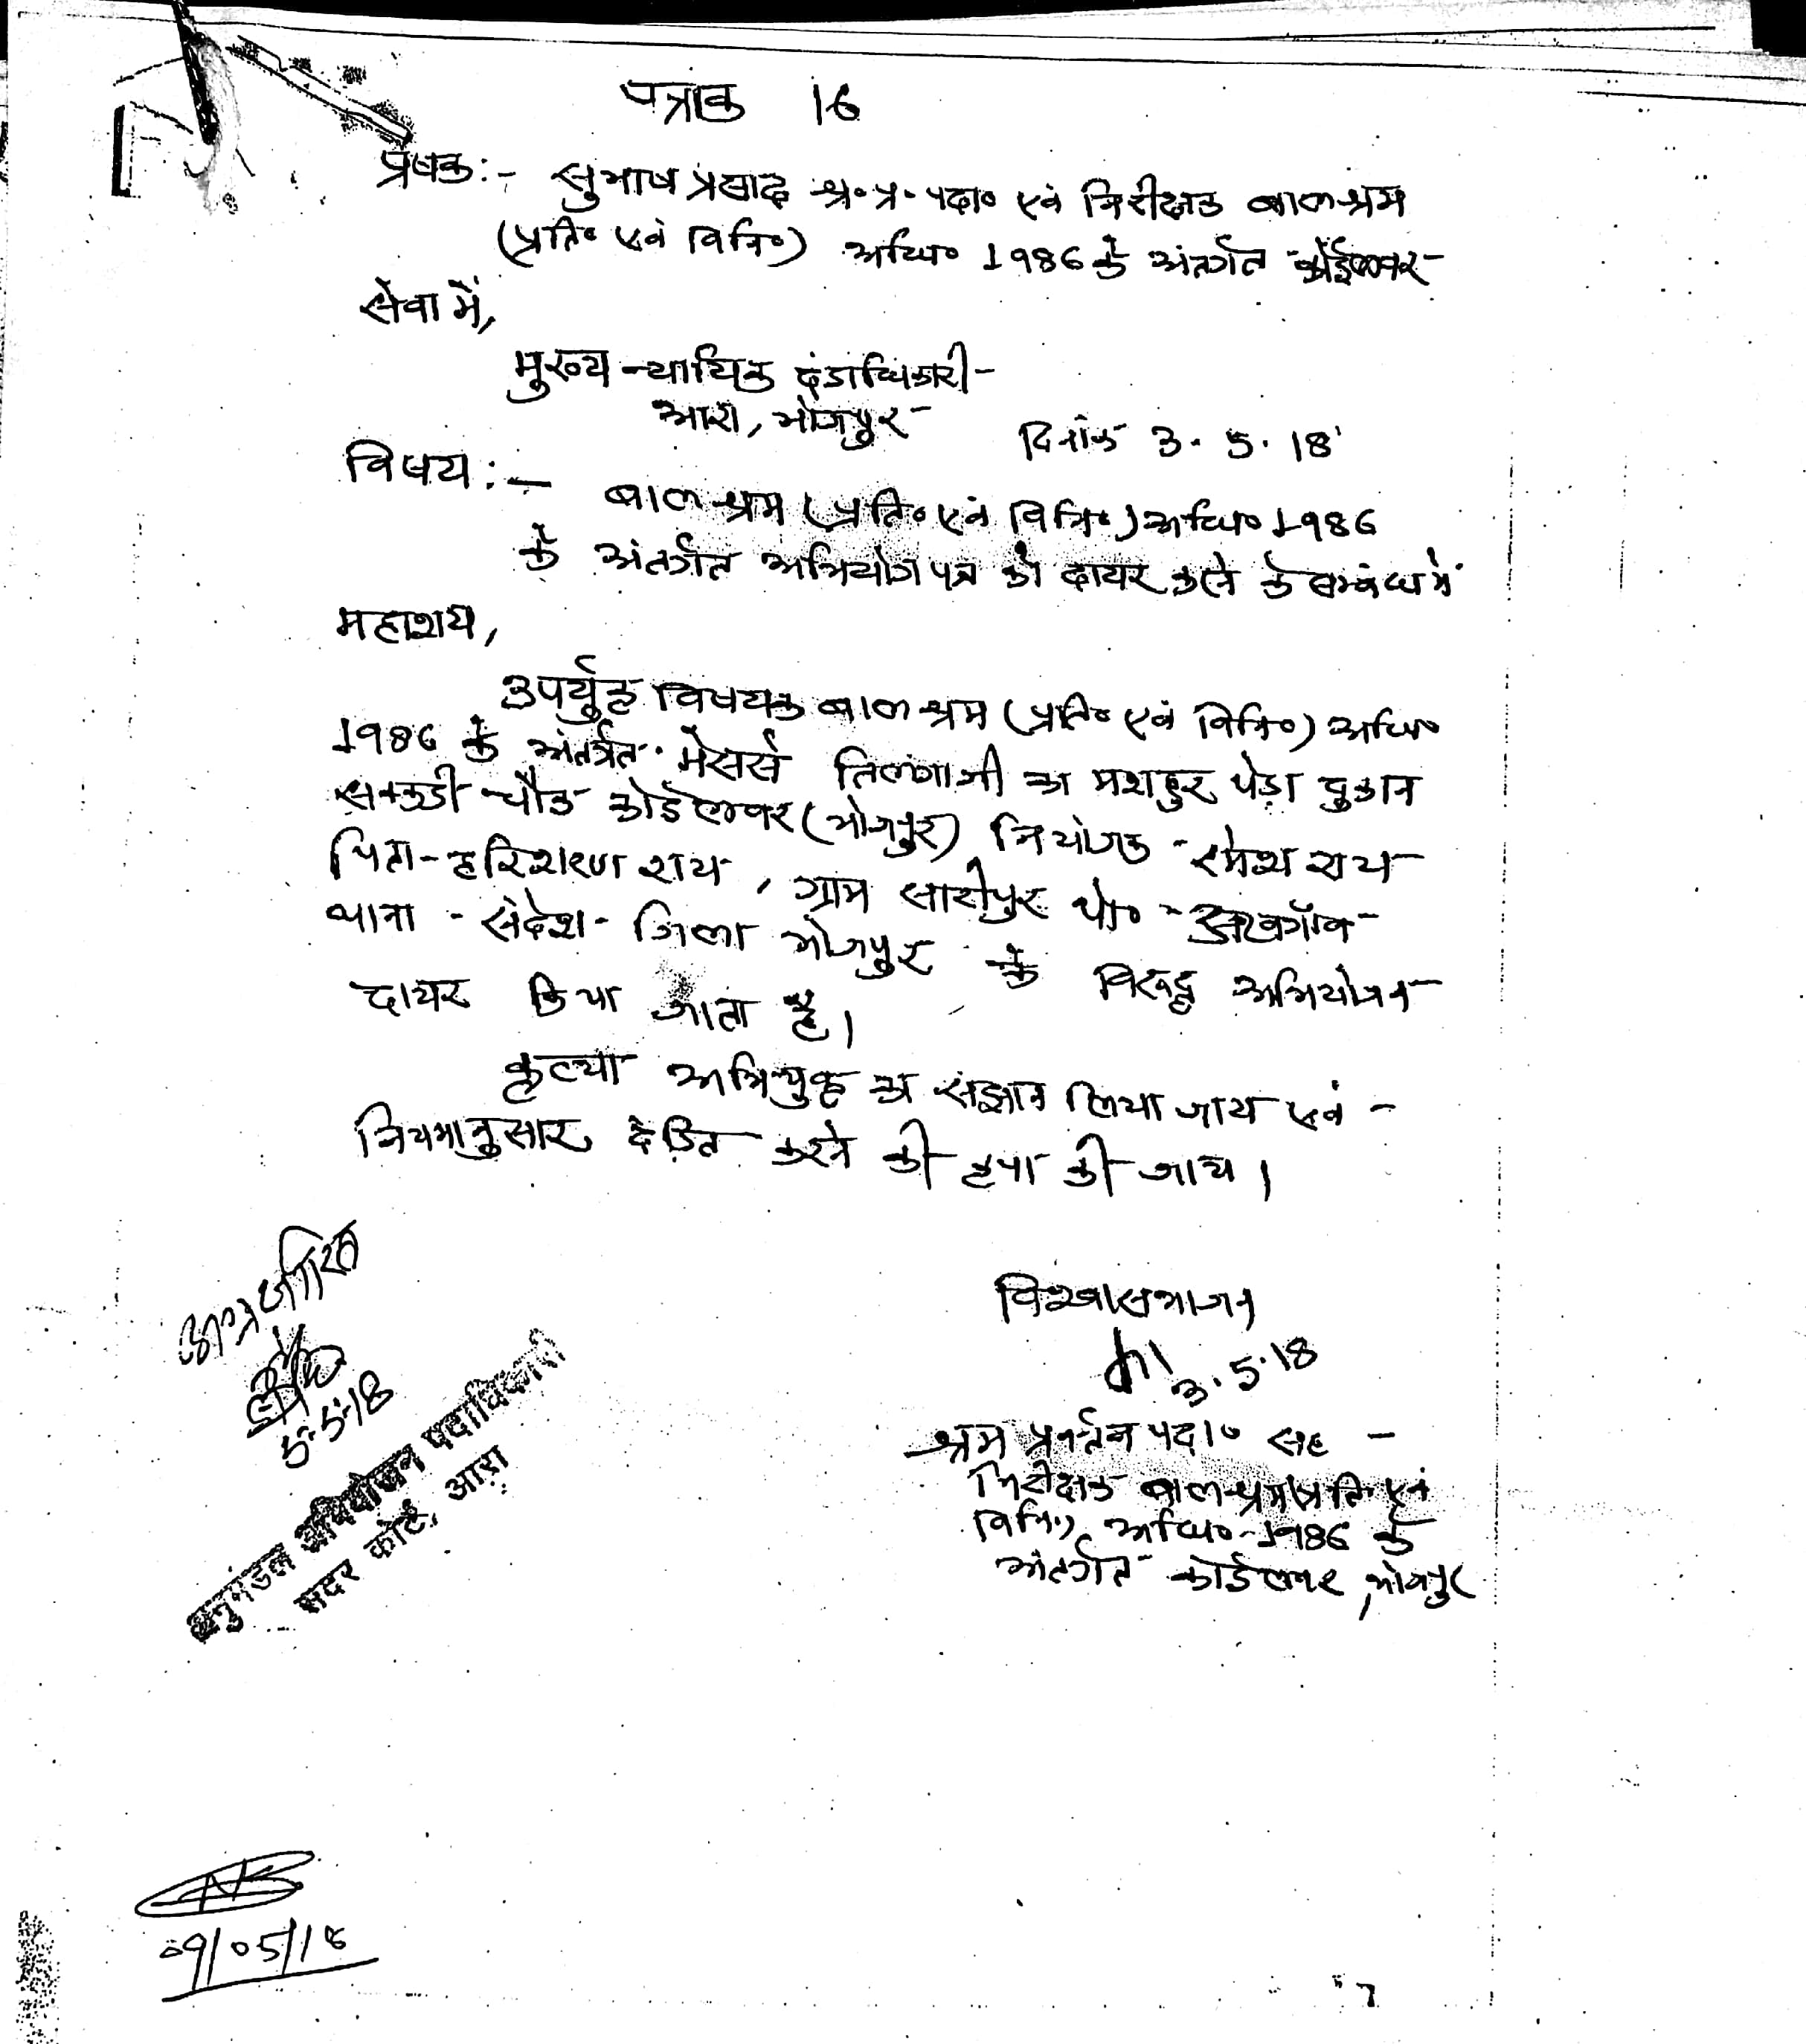 पत्रांक 16
प्रेषक:- सुभाष प्रसाद श्र॰ प्र॰ पदा॰ एवं निरीक्षक बाल श्रम
(प्रति॰ एवं विनि॰) अधि॰ 1986 के अंतर्गत कोईलवर
सेवा में,
मुख्य न्यायिक दंडाधिकारी
आरा, भोजपुर
दिनांक 3.5.18
विषय:- बाल श्रम (प्रति॰ एवं विनि॰) अधि॰ 1986
के अंतर्गत अभियोग पत्र को दायर करने के सम्बंध में
महाशय,
उपर्युक्त विषयक बाल श्रम (प्रति॰ एवं विनि॰) अधि॰
1986 के अंतर्गत मेसर्स तिलंगा जी का मशहुर पेड़ा दुकान
सकडी चौक कोईलवर (भोजपुर) नियोजक - रमेश राय
पिता - हरिशरण राय, ग्राम सारीपुर पो॰ -
थाना - संदेश - जिला भोजपुर के विरूद्ध अभियोजन
दायर किया जाता है।
कृप्या अभियुक्त का संज्ञान लिया जाय एवं -
नियमानुसार दंडित करने की कृपा की जाय।
विश्वासभाजन
3.5.18
श्रम प्रवर्तन पदा॰ सह -
निरीक्षक बाल श्रम (प्रति एवं
विनि॰) अधि॰ - 1986 के
अंतर्गत कोईलवर, भोजपुर
अग्रसारित
5.5.18
अनुमंडल अभियोजन पदाधिकारी
सदर कोर्ट, आरा
09/05/18
7